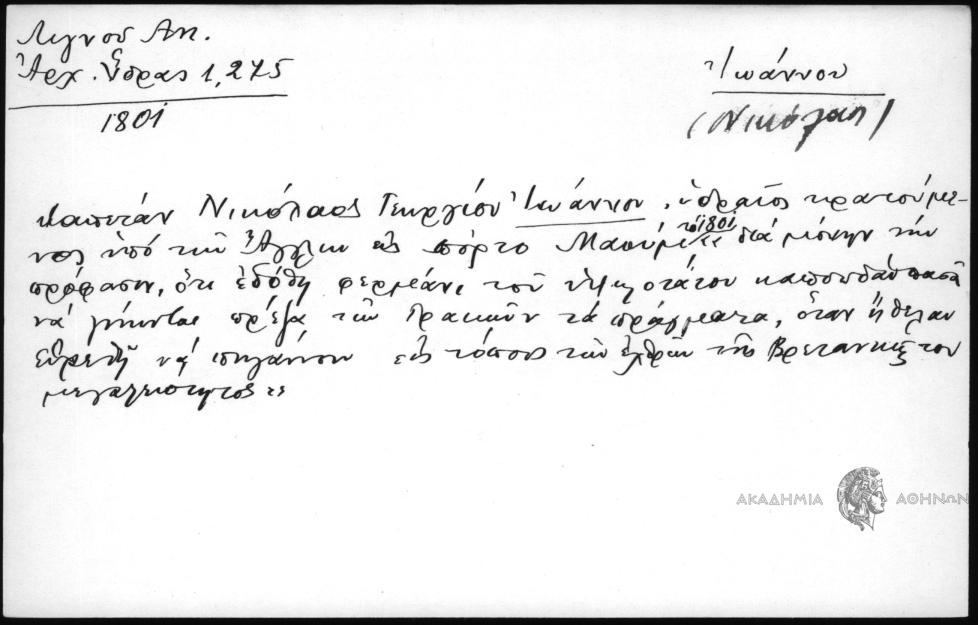 Λιγνού Αν.
Ἀρχ. Ὕδρας 1, 275
1801
Ἰωάννου
(Νικόλαος)
καπετάν Νικόλαος Γεωργίου Ἰωάννου, ὑδραῖος κρατούμε-
νος ὑπό τῶν Ἄγγλων εἰς πόρτο Μαούμ τό 1801 διά μόνην τήν
πρόφασιν, ὅτι ἐδόθη φερμάνι τοῦ ὑψηλοτάτου καπουδάν πασᾶ
νά γίνωνται πρέζα τῶν Γραικῶν τά πράγματα, ὅταν ἤθελαν
εὑρεθῆ νά πηγαίνουν εἰς τόπους τῶν ἐχθρῶν τῆς Βρετανικῆς του
μεγαλειότητος
ΑΚΑΔΗΜΙΑ ΑΘΗΝΩΝ